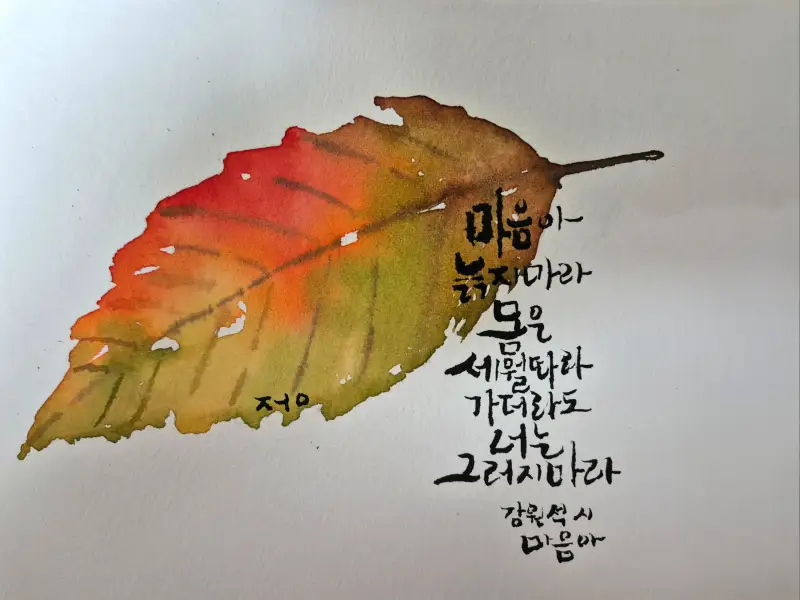 마음아
늙지마라
몸은
세월따라
가더라도
너는
그러지마라
강원석 시
마음아
정